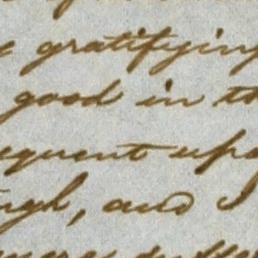 gratifying
good in th
equent upo
ugh, and I